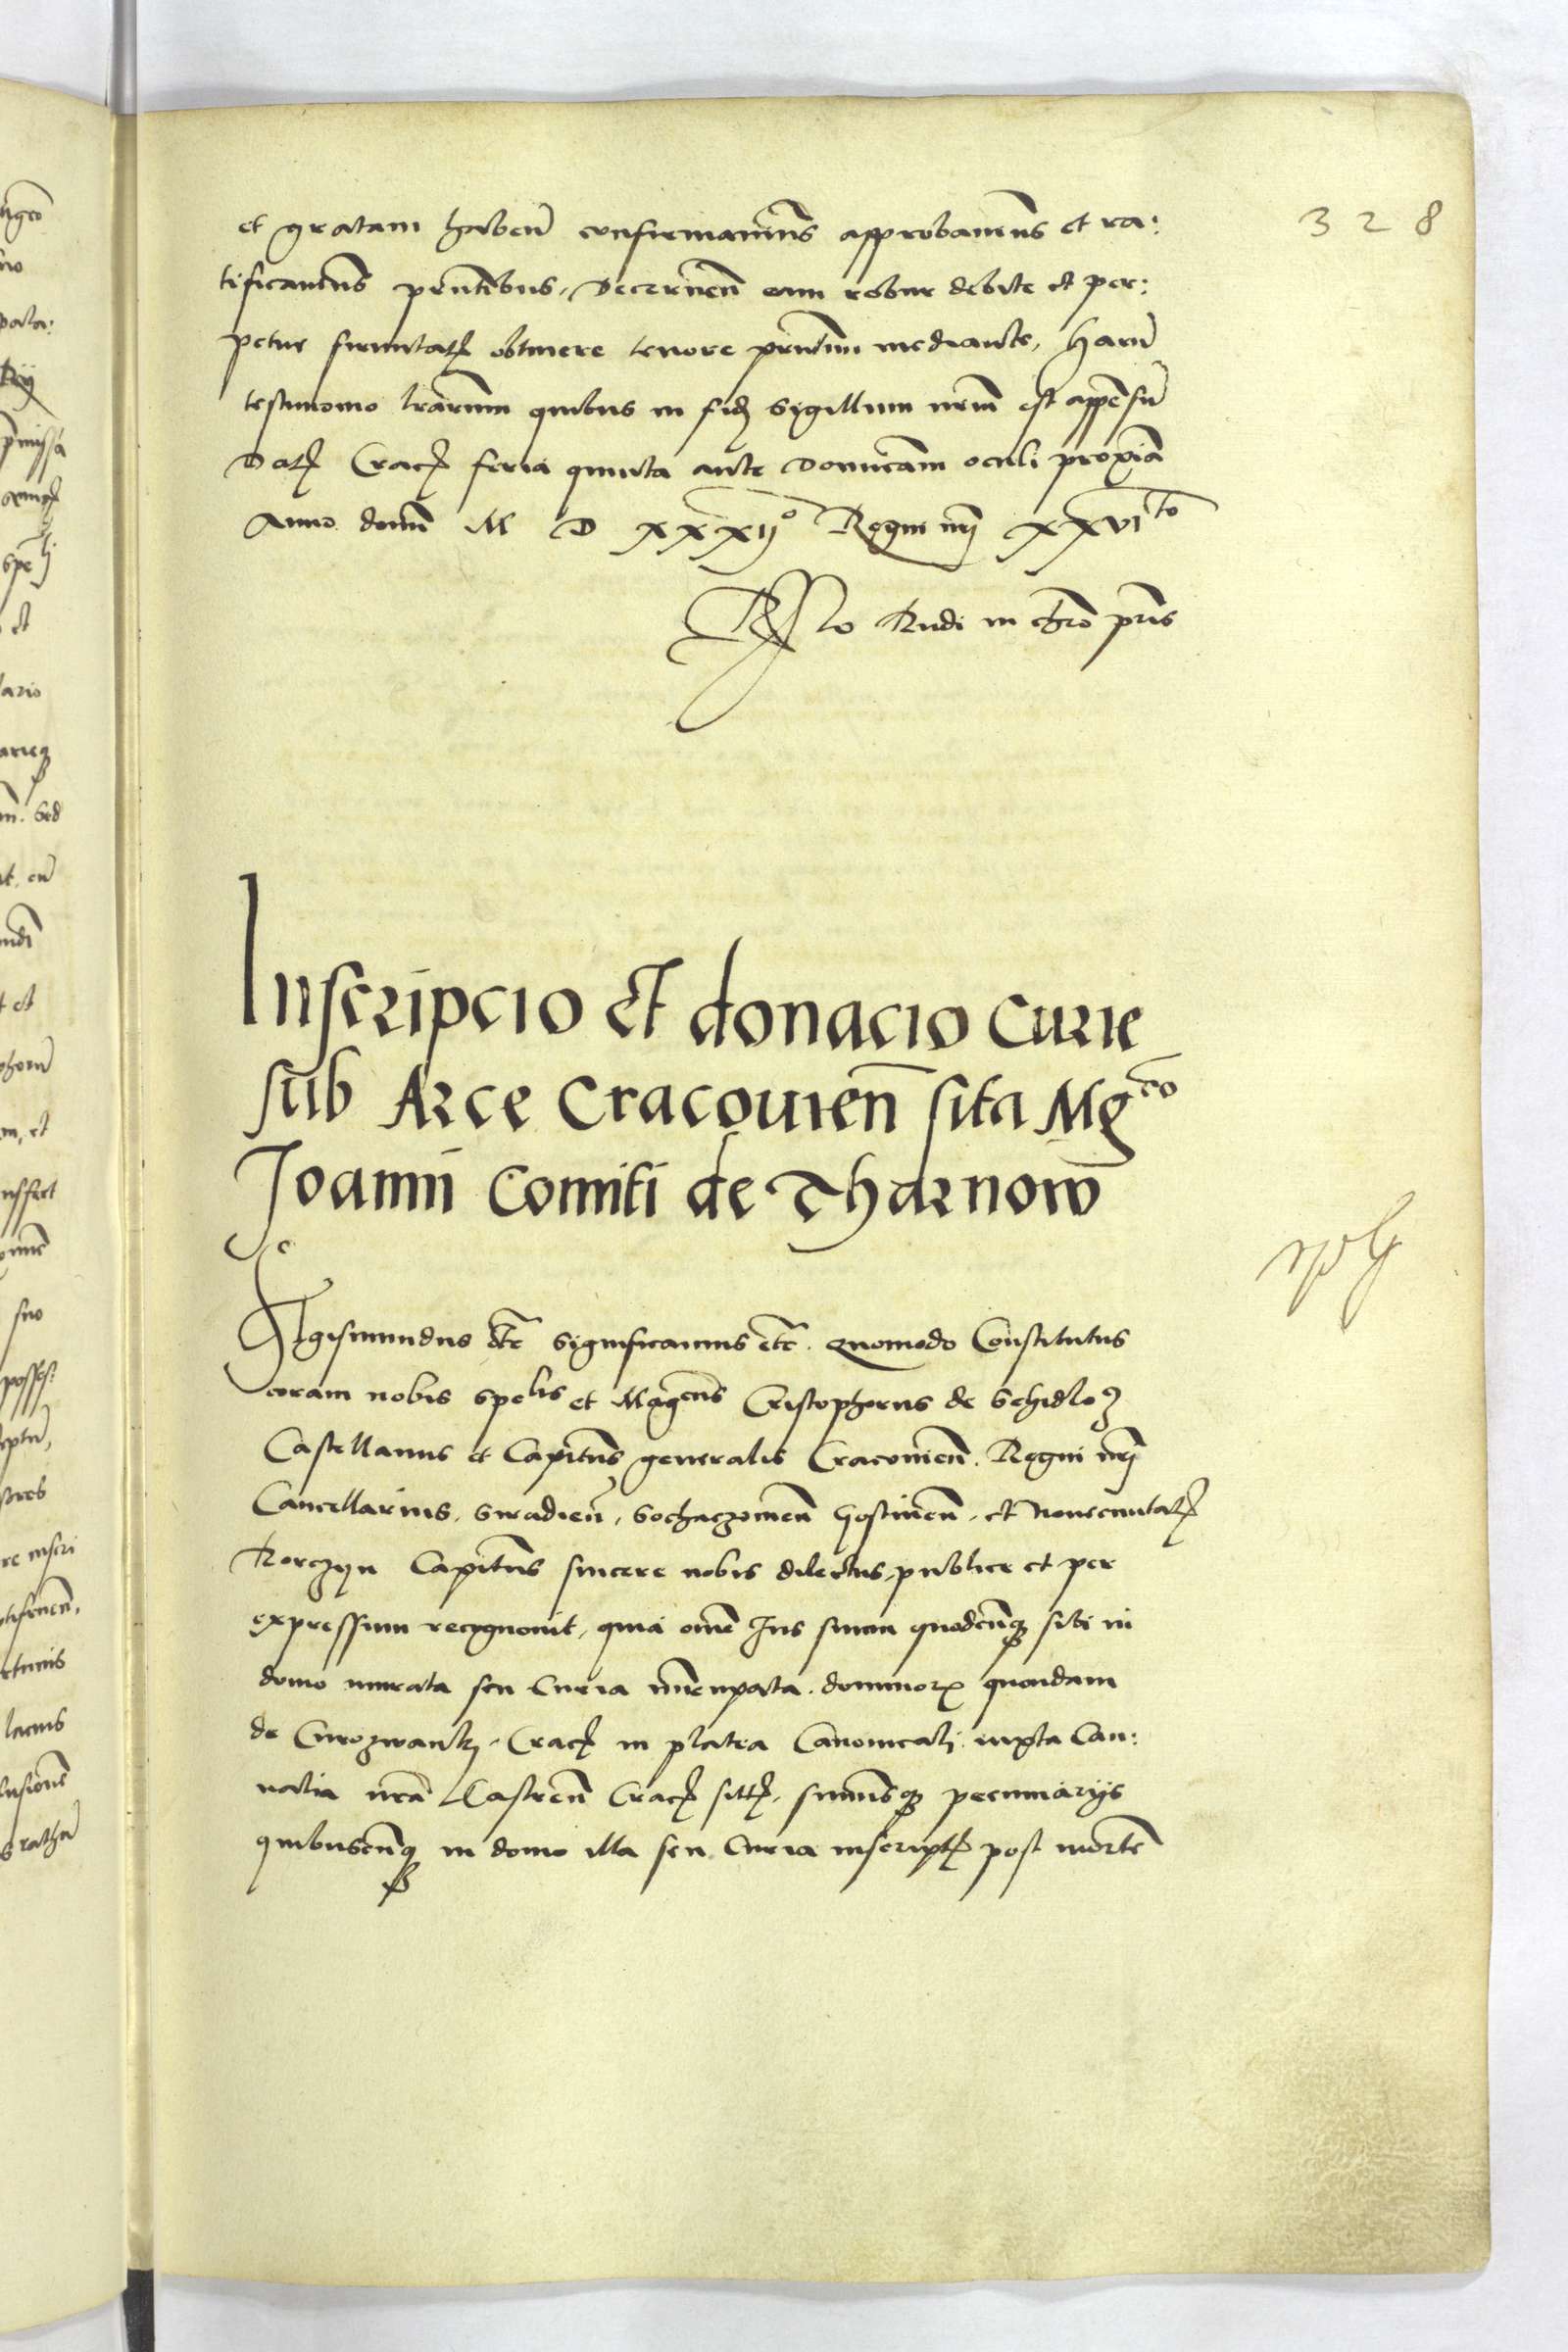 328
et gratam haben̄ confirmamus approbamus et ra:
tificamus pn̄tibus, Decernen̄ eam robur debite et per:
petue firmitatꝭ obtinere tenore pn̄tium mediante, Harū
testimonio lr̄arum quibus in fidꝫ sigillum nr̄m est appēsū
Datꝭ Cracꝭ feria quinta ante Domīcam oculi proxīa
Anno domī M D xxxijº Regni nr̄i xxvito
Rlo Rndi in chrō pr̄is
Inscripcio et donacio Curie
sub Arce Cracouien̄ sita Mgco
Joanni Comiti de Tharnow
Sigismundus etc̄ Significamus etc̄. Quomodo Constitutus
coram nobis spelis et Magcus Cristophorus de Schidlo
Castellanus et Capitūs generalis Cracouien̄. Regni nr̄i
Cancellarius, Siradien̄, Sochaczouien̄ Gostinen̄, et Nouecīuitatꝭ
Korczyn Capitūs sincere nobis dilectus, publice et per
expressum recognouit, quia om̄e Ius suum quodcūqꝫ sibi in
domo murata seu Curia nūcupata dominorꝝ quondam
de Curozwankꝭ, Cracꝭ in platea Canonicali iuxta Can:
nalia nr̄a Castren̄ Cracꝭ sitꝭ, summisqꝫ pecuniarijs
quibuscūqꝫ in domo illa seu Curia inscriptꝭ post mortē